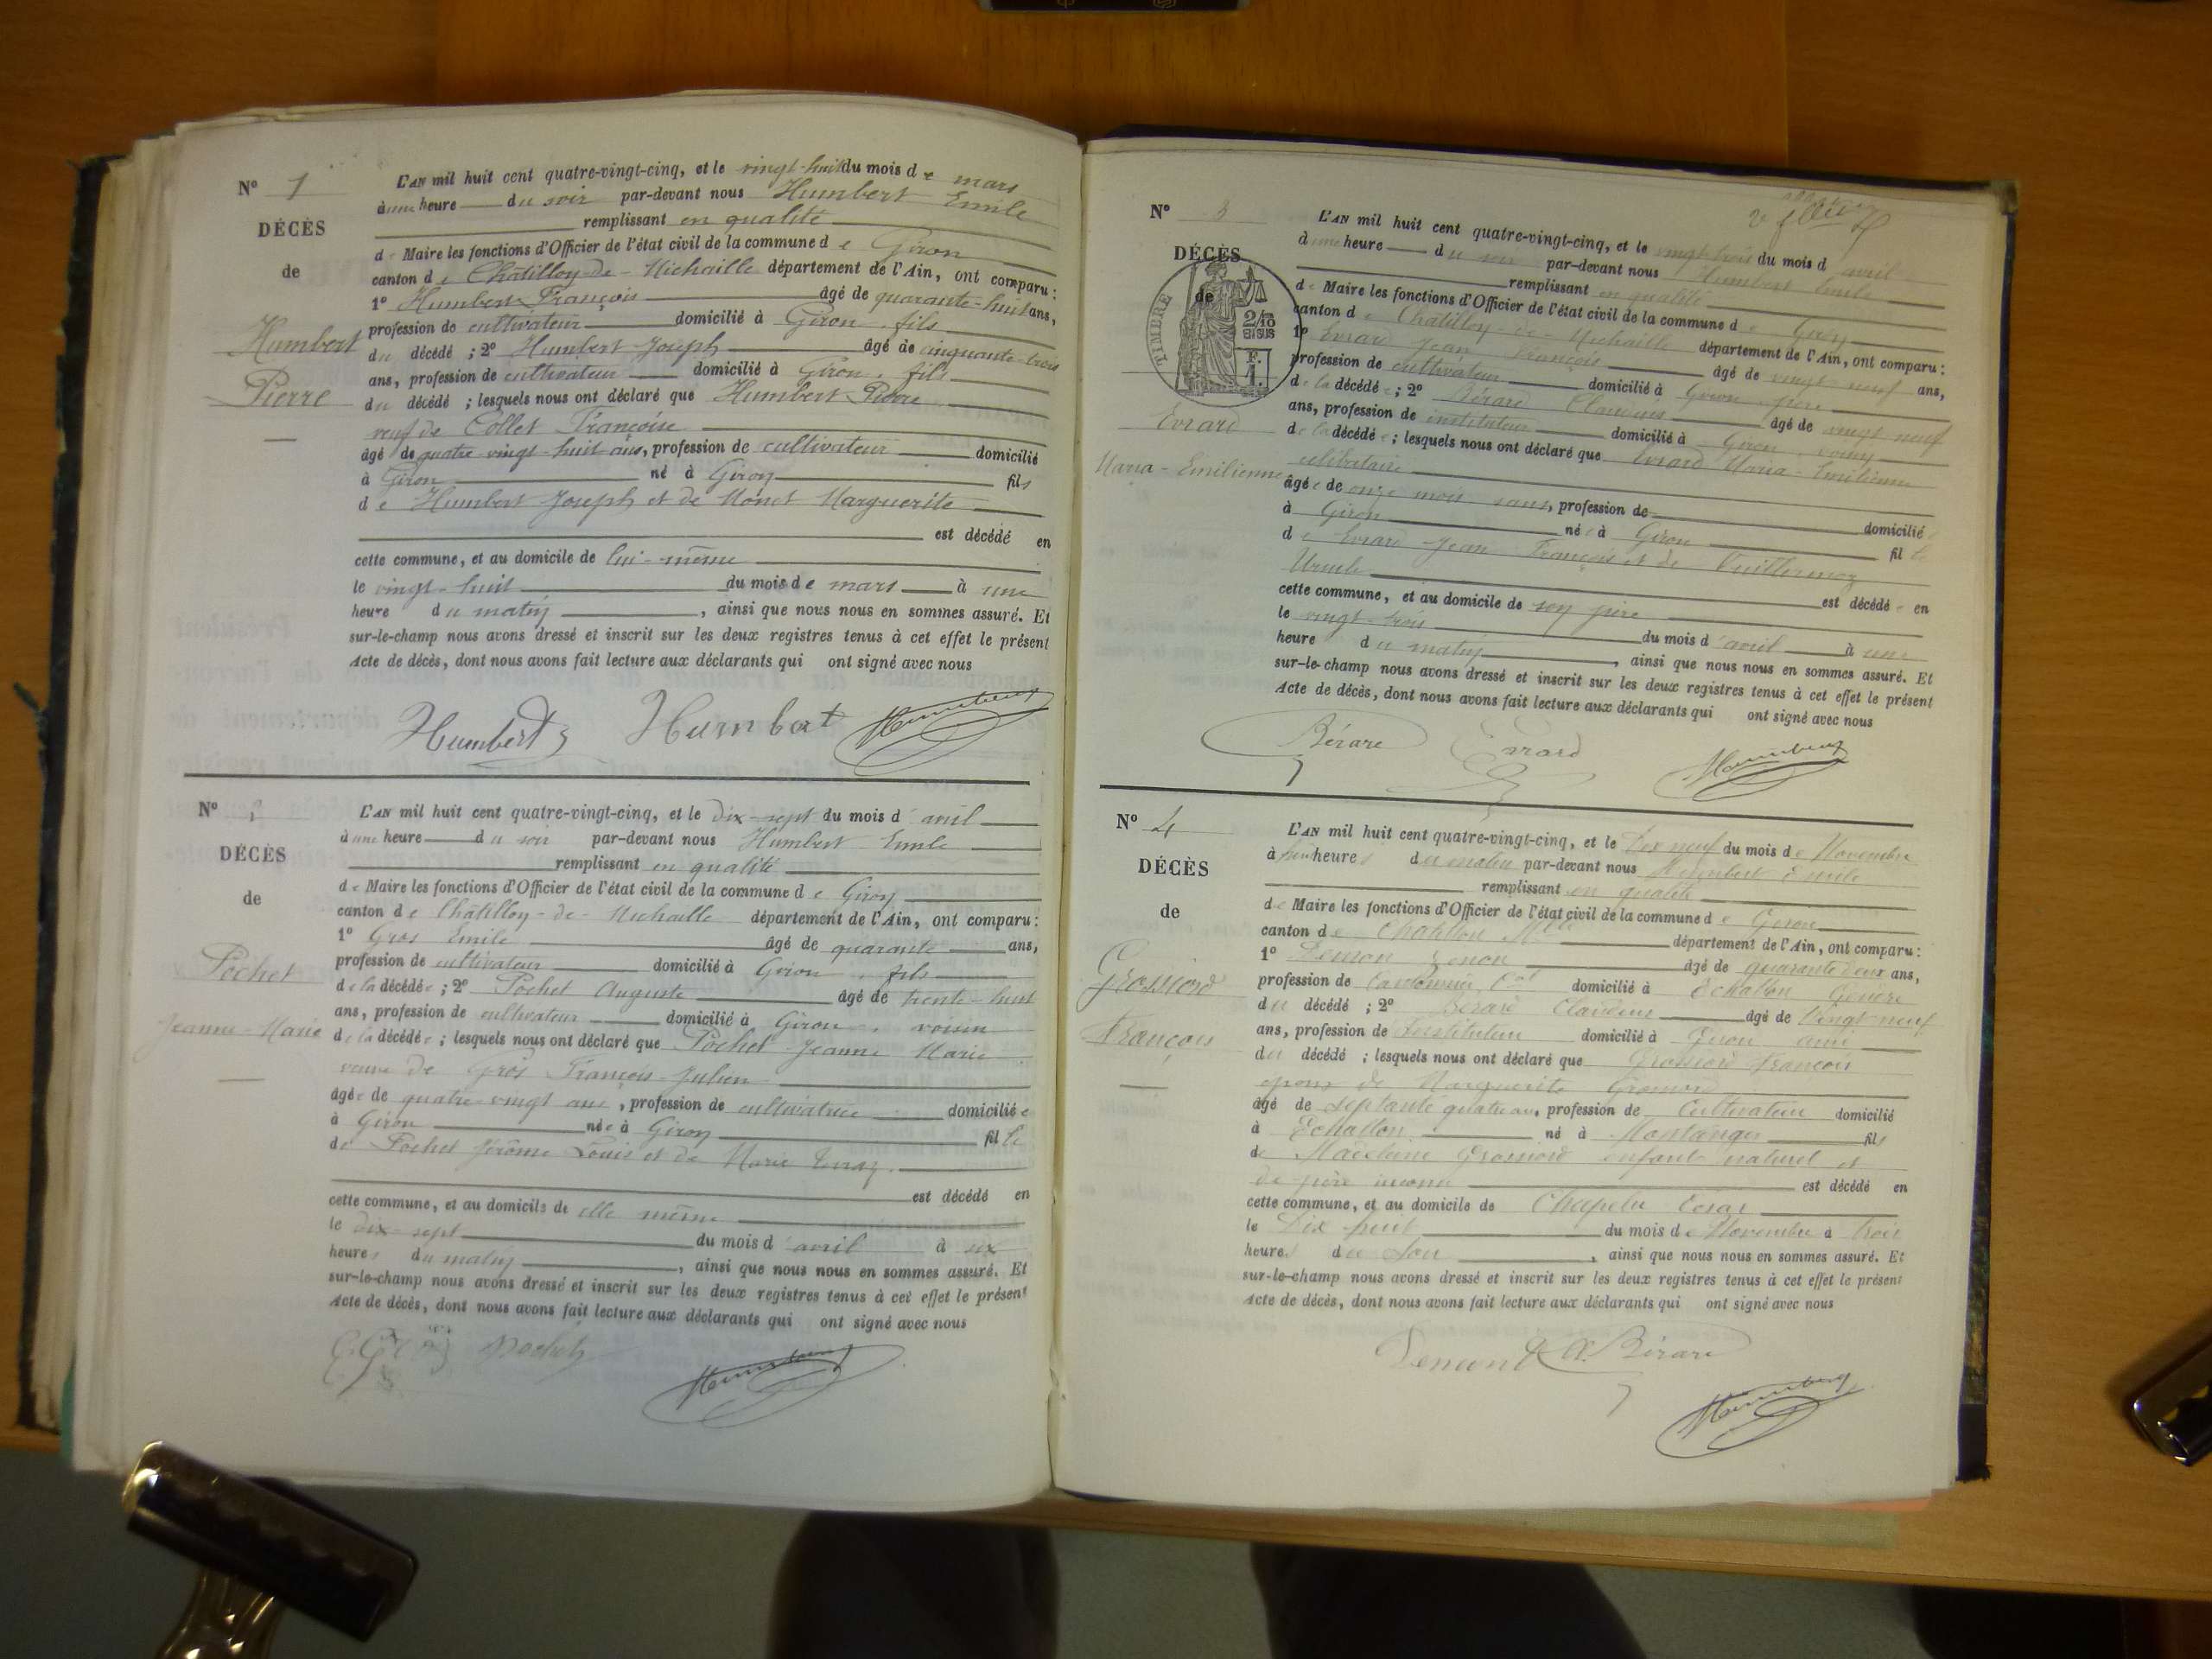 N° 1
DÉCÈS
de
Humbert
Pierre
L'AN mil huit cent quatre-vingt-cinq, et le vingt-huit du mois de mars
à une heure du soir par-devant nous Humbert Emile
remplissant en qualité
de Maire les fonctions d'Officier de l'état civil de la commune de Giron
canton de Châtillon-de-Michaille département de l'Ain, ont comparu :
1° Humbert François âgé de quarante-huit ans,
profession de cultivateur domicilié à Giron, fils
du décédé ; 2° Humbert Joseph âgé de cinquante-trois
ans, profession de cultivateur domicilié à Giron, fils
du décédé ; lesquels nous ont déclaré que Humbert Pierre
veuf de Collet Françoise
âgé de quatre-vingt-huit ans, profession de cultivateur domicilié
à Giron né à Giron fils
de Humbert Joseph et de Monet Marguerite
est décédé en
cette commune, et au domicile de lui-même
le vingt-huit du mois de mars à une
heure du matin, ainsi que nous nous en sommes assuré. Et
sur-le-champ nous avons dressé et inscrit sur les deux registres tenus à cet effet le présent
Acte de décès, dont nous avons fait lecture aux déclarants qui ont signé avec nous
Humbert Humbert
N° 2
DÉCÈS
de
Pochet
Jeanne-Marie
L'AN mil huit cent quatre-vingt-cinq, et le dix-sept du mois d'avril
à une heure du soir par-devant nous Humbert Emile
remplissant en qualité
de Maire les fonctions d'Officier de l'état civil de la commune de Giron
canton de Châtillon-de-Michaille département de l'Ain, ont comparu :
1° Gros Emile âgé de quarante ans,
profession de cultivateur domicilié à Giron, fils
de la décédée ; 2° Pochet Auguste âgé de trente-huit
ans, profession de cultivateur domicilié à Giron, voisin
de la décédée ; lesquels nous ont déclaré que Pochet Jeanne Marie
veuve de Gros François-Julien
âgée de quatre-vingt ans, profession de cultivatrice domiciliée
à Giron née à Giron fille
de Pochet Jérôme Louis et de Marie
est décédé en
cette commune, et au domicile de elle même
le dix-sept du mois d'avril à six
heures du matin, ainsi que nous nous en sommes assuré. Et
sur-le-champ nous avons dressé et inscrit sur les deux registres tenus à cet effet le présent
Acte de décès, dont nous avons fait lecture aux déclarants qui ont signé avec nous
Pochet
N° 3
DÉCÈS
de
TIMBRE
2/10
EN SUS
F.
1.
Evrard
Maria-Emilienne
L'AN mil huit cent quatre-vingt-cinq, et le vingt-trois du mois d'avril
à une heure du soir par-devant nous Humbert Emile
remplissant en qualité
de Maire les fonctions d'Officier de l'état civil de la commune de Giron
canton de Châtillon-de-Michaille département de l'Ain, ont comparu :
1° Evrard Jean François âgé de vingt-neuf ans,
profession de cultivateur domicilié à Giron, père
de la décédée ; 2° Bérard Claudius âgé de vingt-neuf
ans, profession de instituteur domicilié à Giron, voisin
de la décédée ; lesquels nous ont déclaré que Evrard Maria-Emilienne
célibataire
âgée de onze mois ans, profession de domicilié
à Giron née à Giron fille
de Evrard Jean François et de Vuillermoz
Ursule
est décédée en
cette commune, et au domicile de son père
le vingt-trois du mois d'avril à une
heure du matin, ainsi que nous nous en sommes assuré. Et
sur-le-champ nous avons dressé et inscrit sur les deux registres tenus à cet effet le présent
Acte de décès, dont nous avons fait lecture aux déclarants qui ont signé avec nous
Bérard Evrard
N° 4
DÉCÈS
de
Grossiord
François
L'AN mil huit cent quatre-vingt-cinq, et le Dix neuf du mois de Novembre
à heures du matin par-devant nous Humbert Emile
remplissant en qualité
de Maire les fonctions d'Officier de l'état civil de la commune de Giron
canton de Chatillon département de l'Ain, ont comparu :
1° âgé de quarante deux ans,
profession de domicilié à Echallon Gendre
du décédé ; 2° Bérard Claudius âgé de Vingt neuf
ans, profession de Instituteur domicilié à Giron ami
du décédé ; lesquels nous ont déclaré que Grossiord François
époux de Marguerite
âgé de septante quatre ans, profession de Cultivateur domicilié
à Echallon né à Montanges fils
de Grossiord enfant naturel et
de père inconnu est décédé en
cette commune, et au domicile de Chapelu César
le Dix huit du mois de Novembre à trois
heures du Soir, ainsi que nous nous en sommes assuré. Et
sur-le-champ nous avons dressé et inscrit sur les deux registres tenus à cet effet le présent
Acte de décès, dont nous avons fait lecture aux déclarants qui ont signé avec nous
Bérard